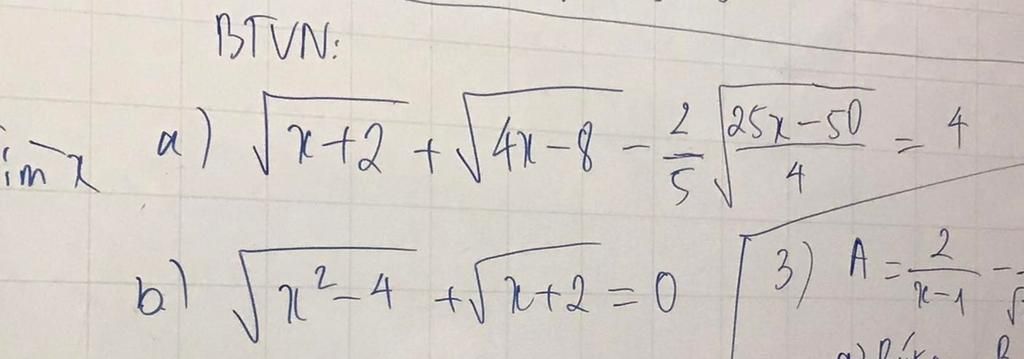 BTVN:
im x a) √(x+2) + √(4x-8) - 2/5 √((25x-50)/4) = 4
b) √(x²-4) + √(x+2) = 0
3) A = 2/(x-1) -